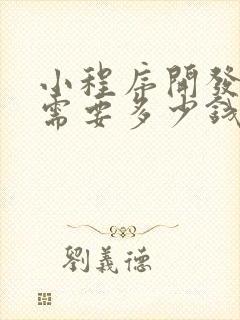 小程序開發
需要多少錢
劉義德